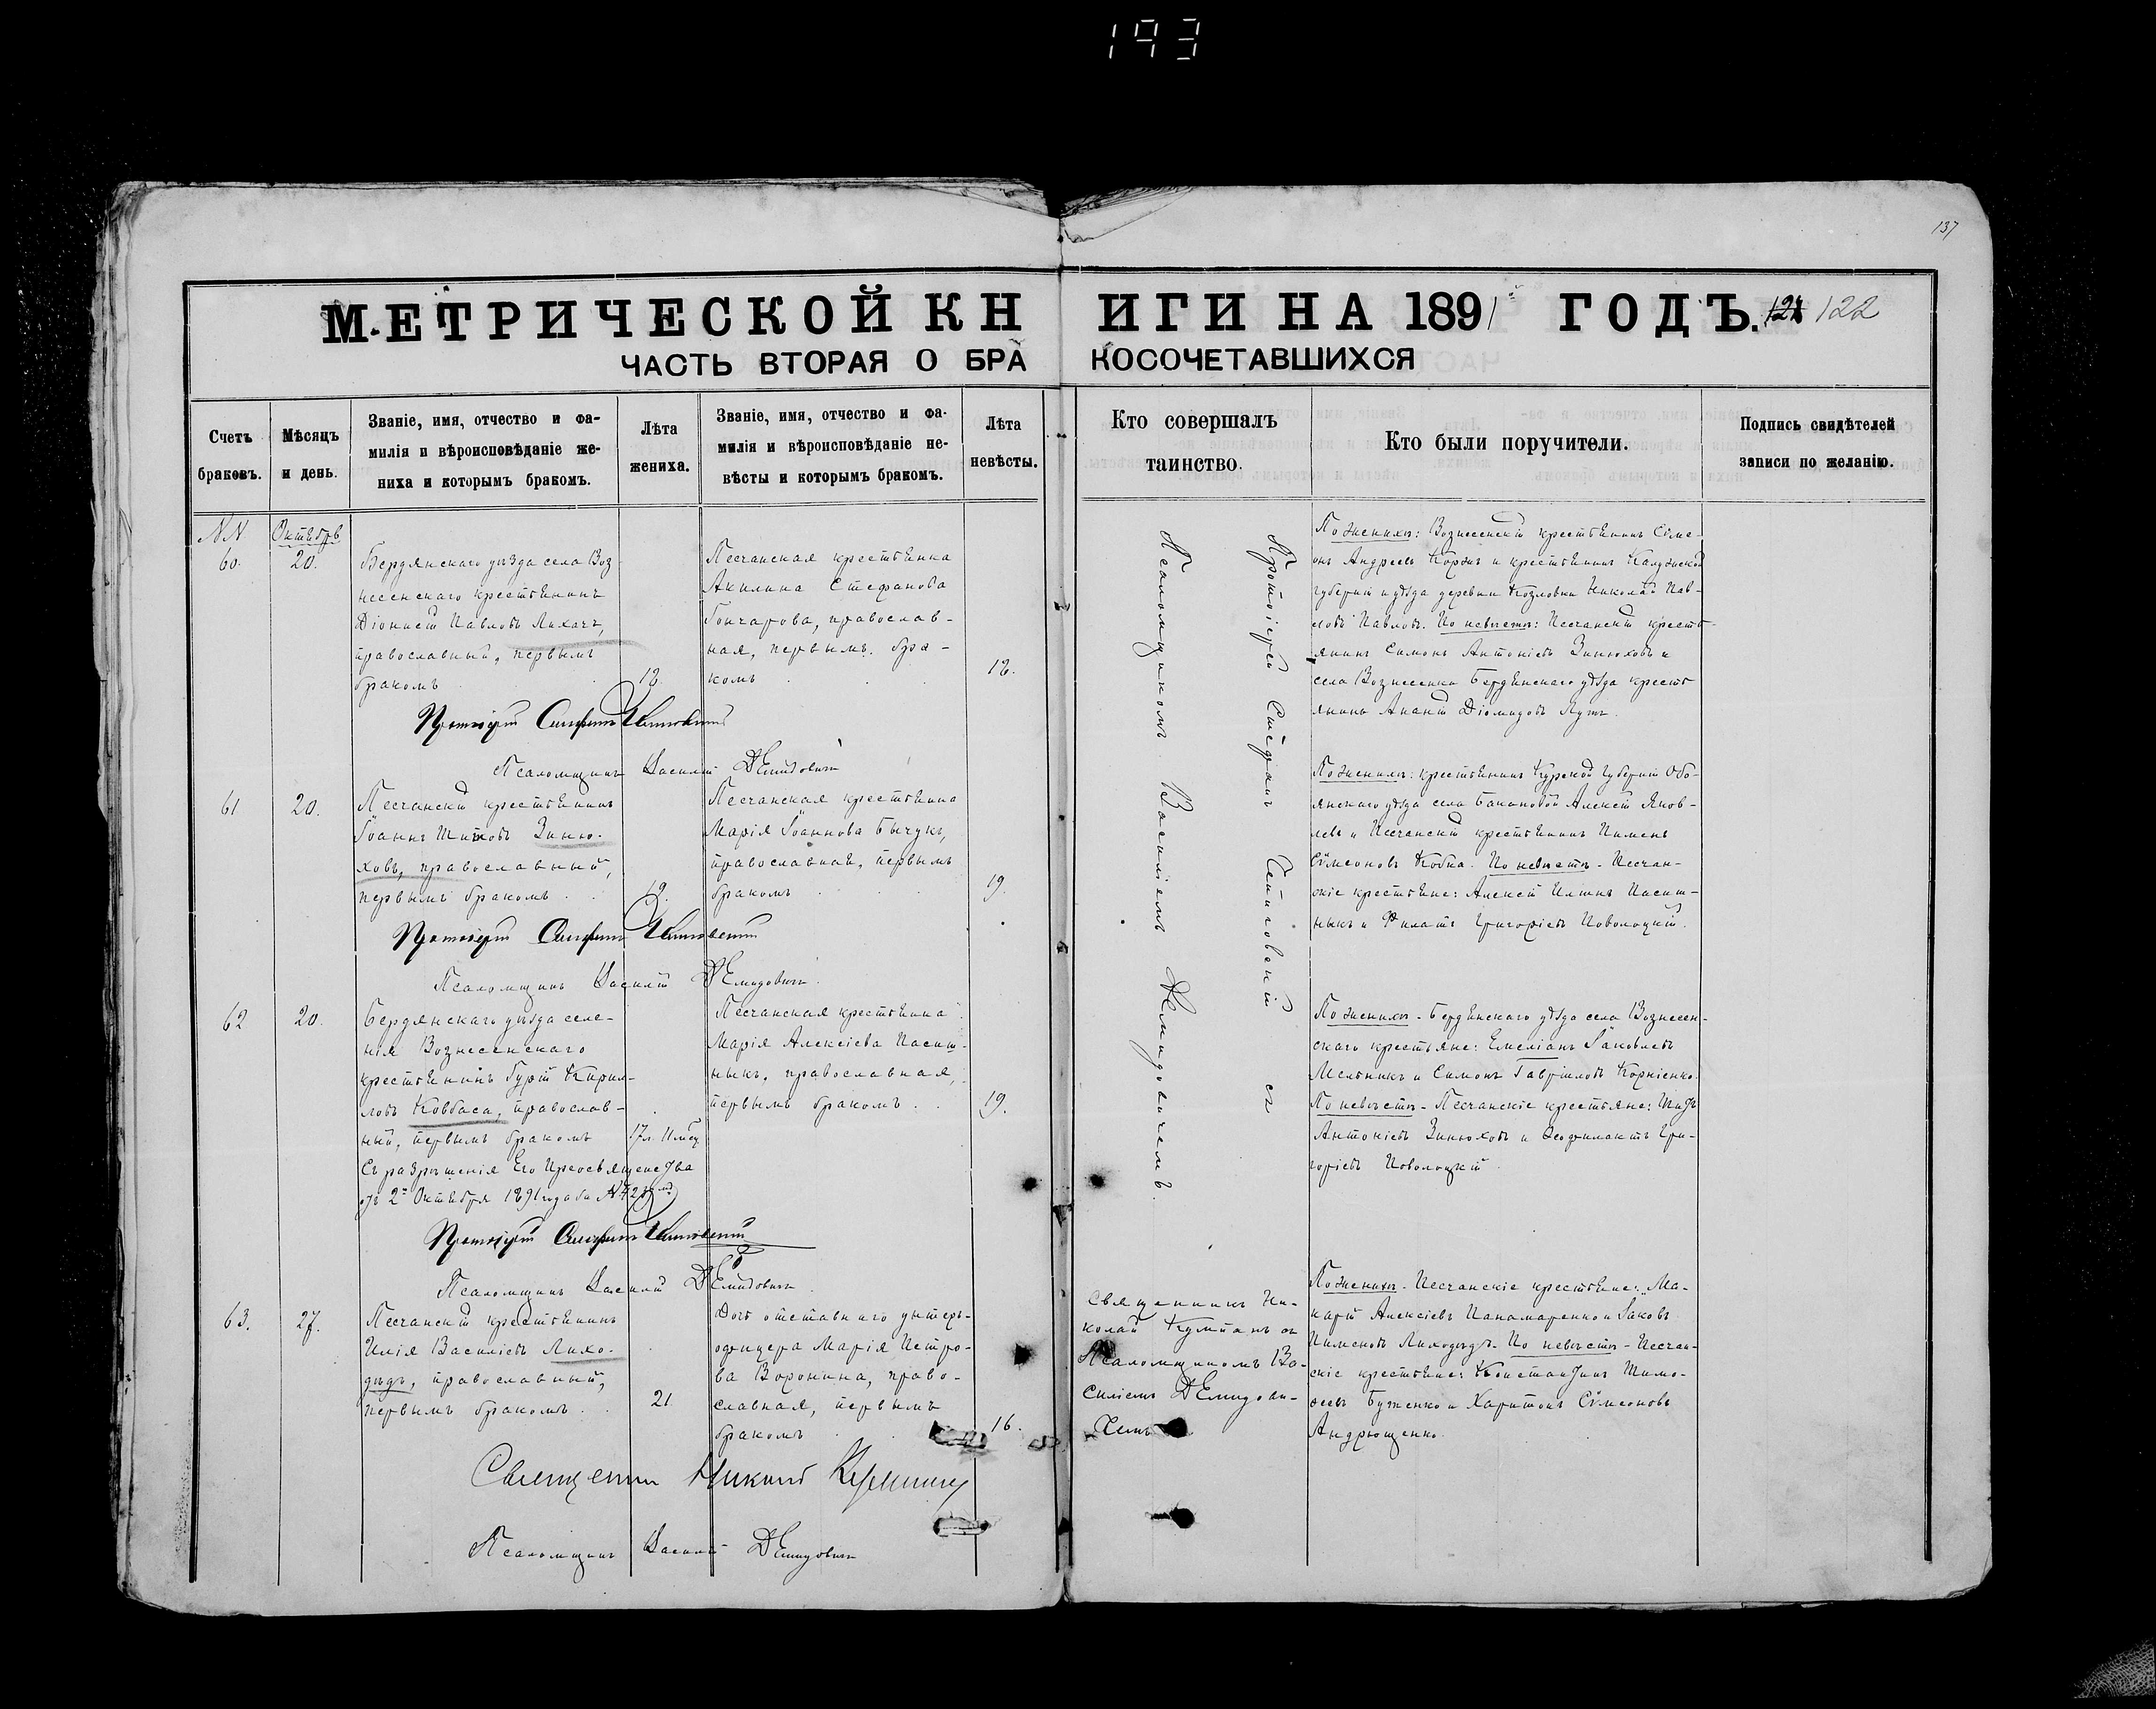 193
137
МЕТРИЧЕСКОЙ КНИГИ НА 1891й ГОДЪ. 122
ЧАСТЬ ВТОРАЯ О БРАКОСОЧЕТАВШИХСЯ
Счетъ браковъ.
Мѣсяцъ и день.
Званіе, имя, отчество и фа-
милія и вѣроисповѣданіе же-
ниха и которымъ бракомъ.
Лѣта жениха.
Званіе, имя, отчество и фа-
милія и вѣроисповѣданіе не-
вѣсты и которымъ бракомъ.
Лѣта невѣсты.
Кто совершалъ
таинство.
Кто были поручители.
Подпись свидѣтелей
записи по желанію.
NN
Октябрь
60.
20.
Бердянскаго уѣзда села Воз
несенскаго крестьянинъ
Діонисій Павловъ Лихачъ,
православный, первымъ
бракомъ
18.
Песчанская крестьянка
Акилина Стефанова
Гончарова, православ-
ная, первымъ бра-
комъ
18.
Протоіерей Стефанъ
Псаломщикъ Василій Демидовичъ
Протоіерей Стефанъ съ
Псаломщикомъ Василіемъ Демидовичемъ.
По женихѣ: Вознесенскій крестьянинъ Сѵме-
онъ Андреевъ Коржъ и крестьянинъ Калужской
губерніи и уѣзда деревни Козловки Николай Пав-
ловъ Павловъ. По невѣстѣ: Песчанскій кресть-
янинъ Симонъ Антоніевъ Зинюховъ и
села Вознесенки Бердянскаго уѣзда кресть
янинъ Ананій Діомидовъ Лутъ.
61
20.
Песчанскій крестьянинъ
Іоаннъ Титовъ Зиню-
ховъ, православный,
первымъ бракомъ
19.
Песчанская крестьянка
Марія Іоаннова Бычукъ,
православная, первымъ
бракомъ
19.
Протоіерей Стефанъ
Псаломщикъ Василій Демидовичъ
По женихѣ: крестьянинъ Курской губерніи Обо-
янскаго уѣзда села Алексій Яков-
левъ и Песчанскій крестьянинъ Пименъ
Сѵмеоновъ Кобца. По невѣстѣ - Песчан-
скіе крестьяне: Алексій Ильинъ Пасит-
ныкъ и Филатъ Григоріевъ Поволоцкій.
62
20.
Бердянскаго уѣзда селе-
нія Вознесенскаго
крестьянинъ Гурій Кирил-
ловъ Ковбаса, православ-
ный, первымъ бракомъ
Съ разрѣшенія Его Преосвященства
отъ 2го Октября 1891 года за №
17 л.
Песчанская крестьянка
Марія Алексіева Пасит-
ныкъ, православная,
первымъ бракомъ
19.
Протоіерей Стефанъ
Псаломщикъ Василій Демидовичъ
По женихѣ - Бердянскаго уѣзда села Вознесен-
скаго крестьяне: Емеліанъ Іаковлевъ
Мельникъ и Симонъ Гавріиловъ Корніенко.
По невѣстѣ - Песчанскіе крестьяне: Титъ
Антоніевъ Зинюховъ и Ѳеофилактъ Гри-
горіевъ Поволоцкій
63.
27.
Песчанскій крестьянинъ
Илія Василіевъ Лихо-
дѣдъ, православный,
первымъ бракомъ
21
Дочь отставнаго унтеръ-
офицера Марія Петро-
ва Воронина, право-
славная, первымъ
бракомъ
16.
Священникъ Ни-
колай съ
Псаломщикомъ Ва-
силіемъ Демидови-
чемъ
По женихѣ - Песчанскіе крестьяне: Ма-
карій Алексіевъ Панамаренко и Іаковъ
Пименовъ Лиходѣдъ. По невѣстѣ - Песчан-
скіе крестьяне: Константинъ Тимо-
ѳеевъ Буженко и Харитонъ Сѵмеоновъ
Андрющенко.
Священникъ Николай
Псаломщикъ Василій Демидовичъ